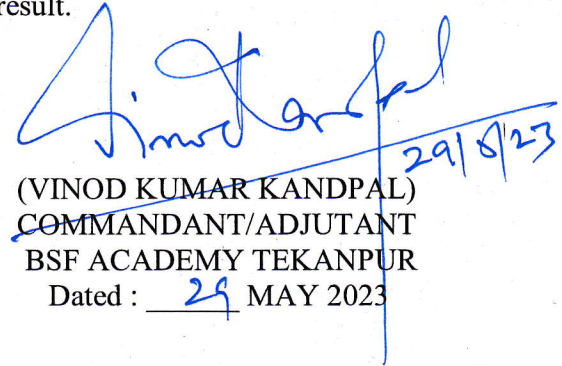 result.
Vinod Kandpal
29/5/23
(VINOD KUMAR KANDPAL)
COMMANDANT/ADJUTANT
BSF ACADEMY TEKANPUR
Dated : 29 MAY 2023